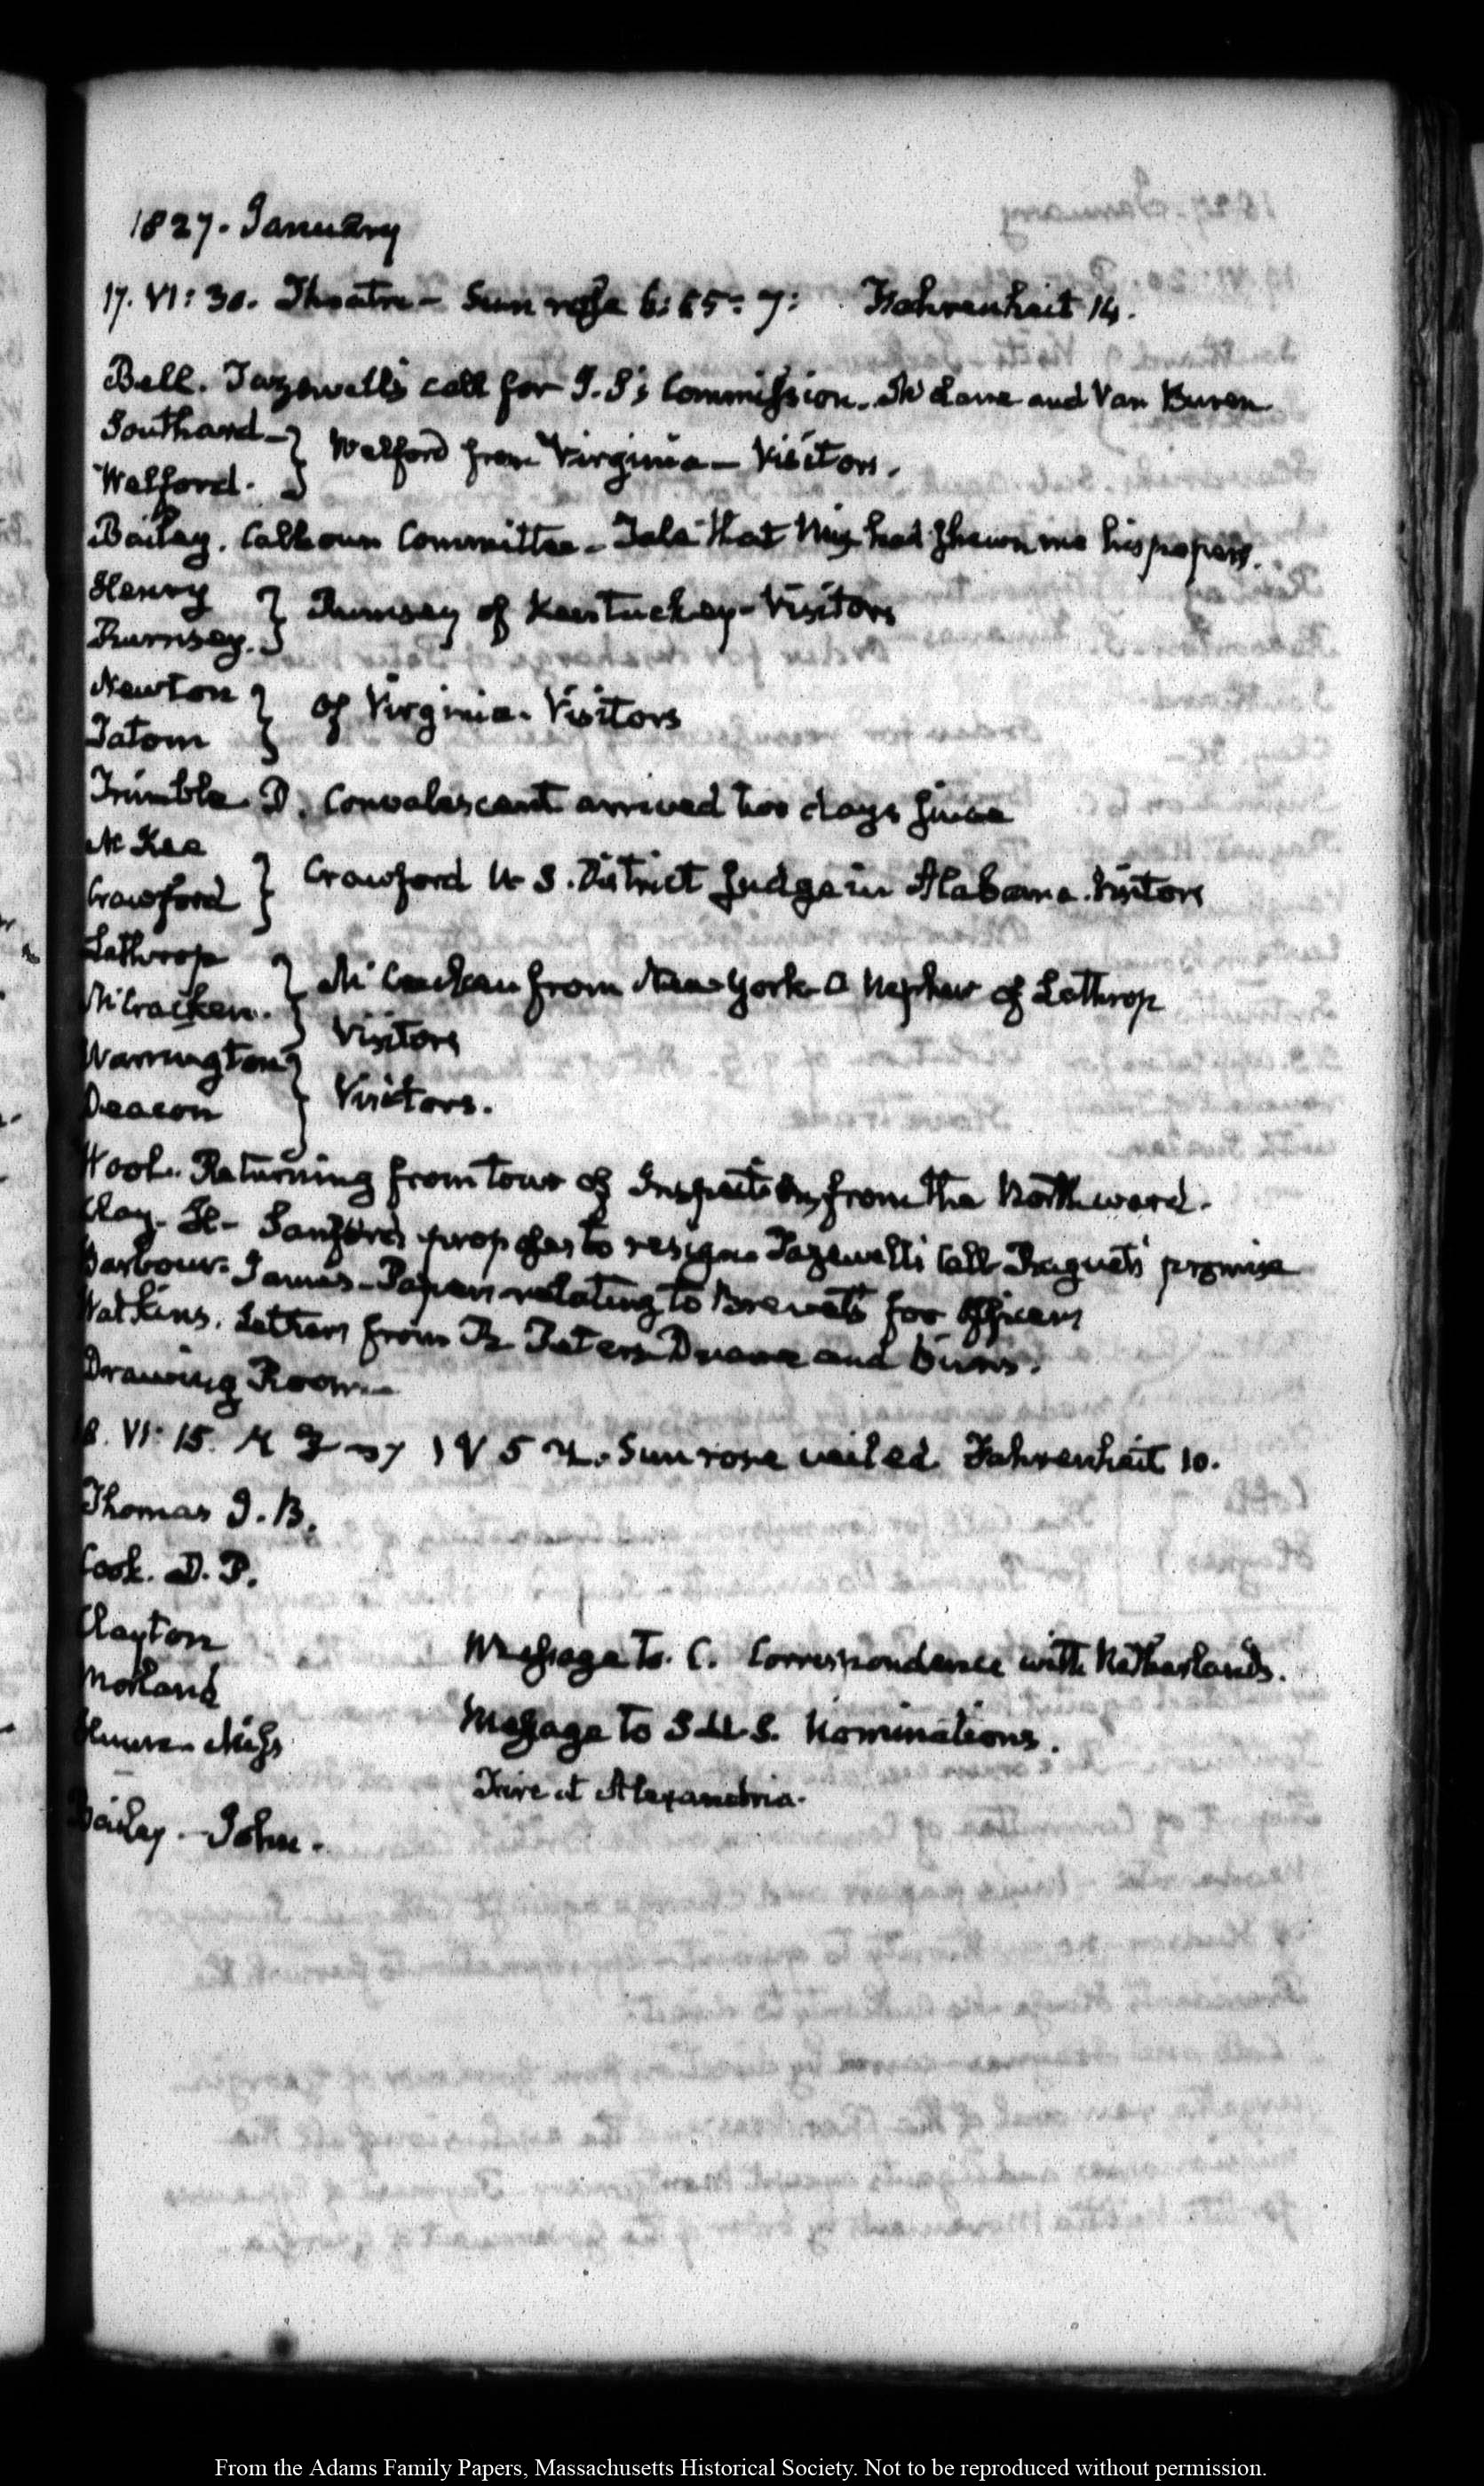 1827. January
17. VI: 30. Theatre - Sun rose 6:55- 7: Fahrenheit 14.
Bell. Tazewell's call for I.S's Commission. McLane and Van Buren
Southard
Welford. } Welford from Virginia - Visitors.
Bailey. Calhoun Committee - Tale that Mix had shewn me his papers.
Henry
Rumsey. } Rumsey of Kentucky - Visitors
Newton
Tatom } of Virginia. Visitors
Trimble. D. Convalescent arrived two days since
McKee
Crawford } Crawford U.S. District Judge in Alabama. Visitors
Lathrop
McCracken. } McCracken from New York a Nephew of Lathrop
Visitors
Warrington
Deacon } Visitors.
Wool. Returning from tour of Inspection from the Northward.
Clay. H- Sanford's proposes to resign Tazewell's Call Raguet's promise
Barbour. James - Papers relating to Brevets for Officers
Watkins. Letters from Duane and Binns.
Drawing Room
18. VI: 15. Sun rose veiled. Fahrenheit 10.
Thomas J. B.
Cook. D. P.
Clayton
Message to. C. Correspondence with Netherlands.
Morland
Message to S.U.S. Nominations.
Miss
Fire at Alexandria.
Bailey - John.
From the Adams Family Papers, Massachusetts Historical Society. Not to be reproduced without permission.